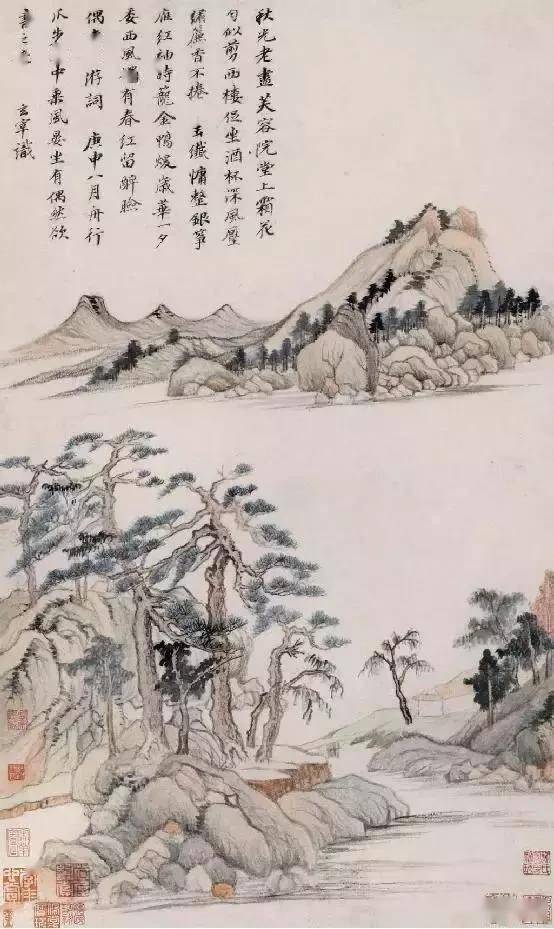 秋光老盡芙蓉院堂上霜花
勻似剪西樓促坐酒杯深風壓
繡簾香不捲 玉纖慵整銀箏
雁紅袖時籠金鴨煖歲華一夕
委西風有春紅留醉臉
偶游詞 庚申八月舟行
瓜步中乘風晏坐有偶然欲
書之
玄宰識